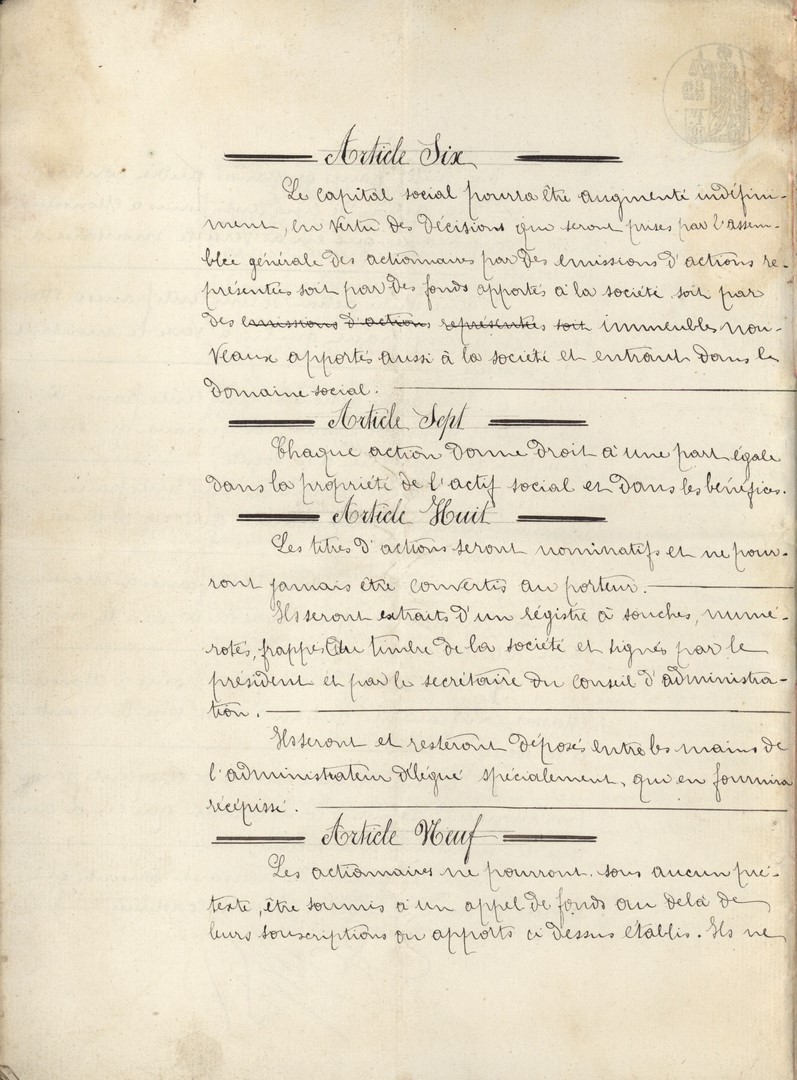 Article Six
Le capital social pourra être augmenté indéfini-
ment, en vertu des décisions qui seront prises par l'assem-
blée générale des actionnaires par des émissions d'actions re-
présentées soit par des fonds apportés à la société soit par
des émissions d'actions représentées soit immeubles nou-
veaux apportés aussi à la société et entrant dans le
domaine social.
Article Sept
Chaque action donne droit à une part égale
dans la propriété de l'actif social et dans les bénéfices.
Article Huit
Les titres d'actions seront nominatifs et ne pour-
ront jamais être convertis au porteur.
Ils seront extraits d'un régistre à souches, numé-
rotés, frappés du timbre de la société et signés par le
président et par le secrétaire du conseil d'administra-
tion.
Ils seront et resteront déposés entre les mains de
l'administrateur délégué spécialement, qui en fournira
récépissé.
Article Neuf
Les actionnaires ne pourront sous aucun pré-
texte, être soumis à un appel de fonds au delà de
leurs souscriptions ou apports ci dessus établis. Ils ne